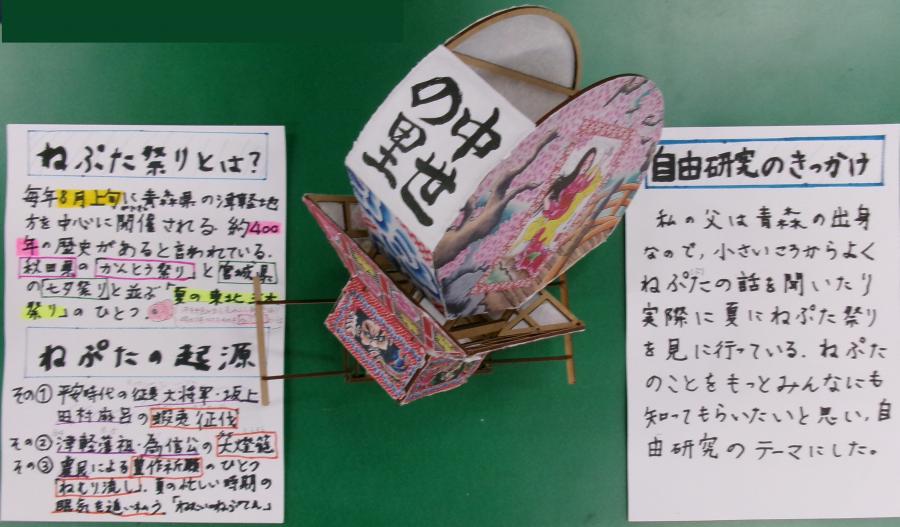 ねぷた祭りとは?
毎年8月上旬に青森県の津軽地
方を中心に開催される。約400
年の歴史があると言われている。
秋田県の「かんとう祭り」と宮城県
の「七夕祭り」と並ぶ「夏の東北三大
祭り」のひとつ
ねぷたの起源
その① 平安時代の征夷大将軍・坂上
田村麻呂の蝦夷征伐
その② 津軽藩祖・為信公の大燈籠
その③ 農民による豊作祈願のひとつ
「ねむり流し」。夏の忙しい時期の
眠気を追い払う
中世
の里
自由研究のきっかけ
私の父は青森の出身
なので、小さいころからよく
ねぷたの話を聞いたり
実際に夏にねぷた祭り
を見に行っている。ねぷた
のことをもっとみんなにも
知ってもらいたいと思い、自
由研究のテーマにした。